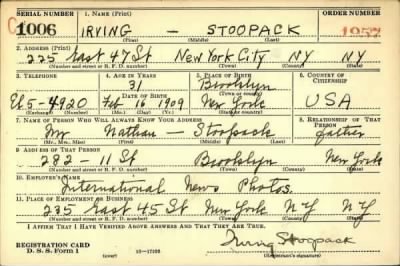 SERIAL NUMBER 1. NAME (Print) ORDER NUMBER
C 1006 IRVING — STOOPACK 1957
(First) (Middle) (Last)
2. ADDRESS (Print)
225 East 47 St New York City NY NY
(Number and street or R. F. D. number) (Town) (County) (State)
3. TELEPHONE 4. AGE IN YEARS 5. PLACE OF BIRTH 6. COUNTRY OF CITIZENSHIP
31 Brooklyn
DATE OF BIRTH (Town or county)
El 5-4920 Feb 16 1909 New York USA
(Exchange) (Number) (Mo.) (Day) (Yr.) (State or country)
7. NAME OF PERSON WHO WILL ALWAYS KNOW YOUR ADDRESS 8. RELATIONSHIP OF THAT PERSON
Mr Nathan — Stoopack father
(Mr., Mrs., Miss) (First) (Middle) (Last)
9. ADDRESS OF THAT PERSON
282 - 11 St Brooklyn New York
(Number and street or R. F. D. number) (Town) (County) (State)
10. EMPLOYER'S NAME
International News Photos.
11. PLACE OF EMPLOYMENT OR BUSINESS
235 East 45 St New York NY NY
(Number and street or R. F. D. number) (Town) (County) (State)
I AFFIRM THAT I HAVE VERIFIED ABOVE ANSWERS AND THAT THEY ARE TRUE.
REGISTRATION CARD
D. S. S. Form 1 (over) Irving Stoopack